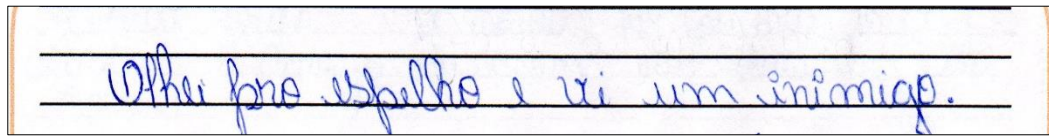 Olhei pro espelho e vi um inimigo.